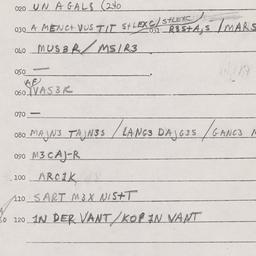 020 UN AGALS (230
030 A MENC+VUS TIT S+LEXC/S+LEXC R3S+AJS / MARS
040 MUS3R / MSIR3
050 —
060 VAS3R
070 —
080 MAJN3 TAJN3S / LANG3 DAJG3S / GANG3
090 M3CAJ-R
100 ARC1K
110 SART M3X NIS+T
120 1N DER VANT / KOP 1N VANT